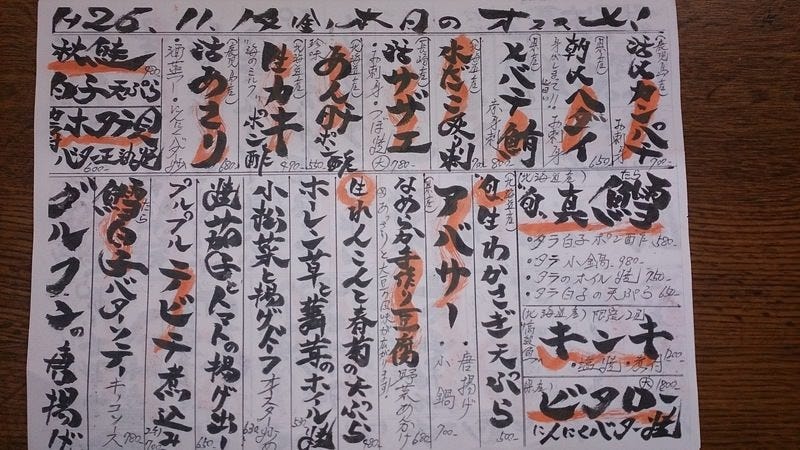 H26. 11. 本日のオススメ!
(鹿児島産)
活〆カンパチ
お刺身
700-
(県産)
朝〆ヘダイ
お刺身
650-
(県産)
メバチ鮪
お刺身
800-
(北海道産)
水だこ吸盤
(長崎産)
活サザエ
・お刺身・つぼ焼
大 780-
(北海道産)
珍味
あん肝ポン酢
550-
(北海道産)
"海のミルク"
生カキポン酢
490-
(鹿児島産)
活あさり
・酒蒸し・にんにく炒め
680-
秋鮭
白子天ぷら
ホタテ貝
バター正油焼
600-
(北海道産)
真鱈
たら
・タラ白子ポン酢 580-
・タラ小鍋 980-
・タラのホイル焼 750-
・タラ白子の天ぷら 650-
(北海道産) 限定2匹
高級魚
キンキ
・塩焼・煮付
1200-
(県産)
ビタロー
大 1800-
にんにくバター焼
(北海道産)
生わかさぎ天ぷら
500-
(県産)
アバサー
・唐揚げ
・小鍋
700-
なめらか手作り豆腐
野菜あんかけ
680-
生れんこんと春菊の天ぷら
480-
ホーレン草と舞茸のホイル焼
580-
小松菜と揚げドーフオイスター炒め
630-
焼茄子とトマトの揚げ出し
650-
プルプルテビチ煮込み
700-
鱈白子バターソテー
たら
キーコソース
980-
グルクンの唐揚げ